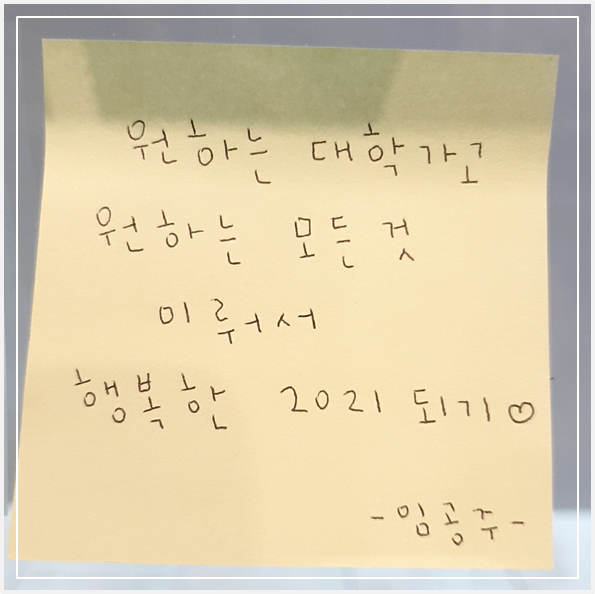 원하는 대학가고
원하는 모든 것
이루어서
행복한 2021 되기♡
-임공주-